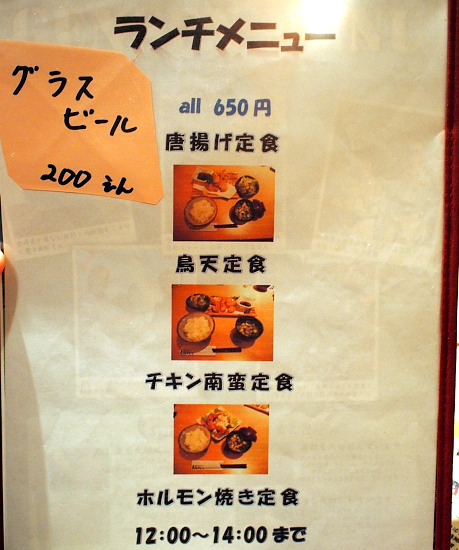 ランチメニュー
グラス
ビール
200えん
all 650円
唐揚げ定食
鳥天定食
チキン南蛮定食
ホルモン焼き定食
12:00〜14:00まで